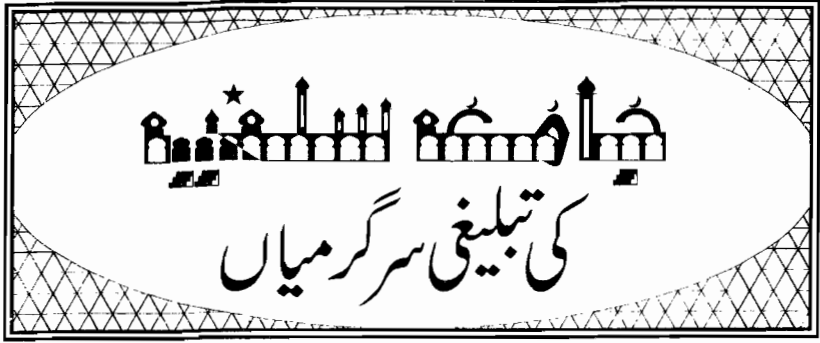 جامعہ سلفیہ
کی تبلیغی سرگرمیاں